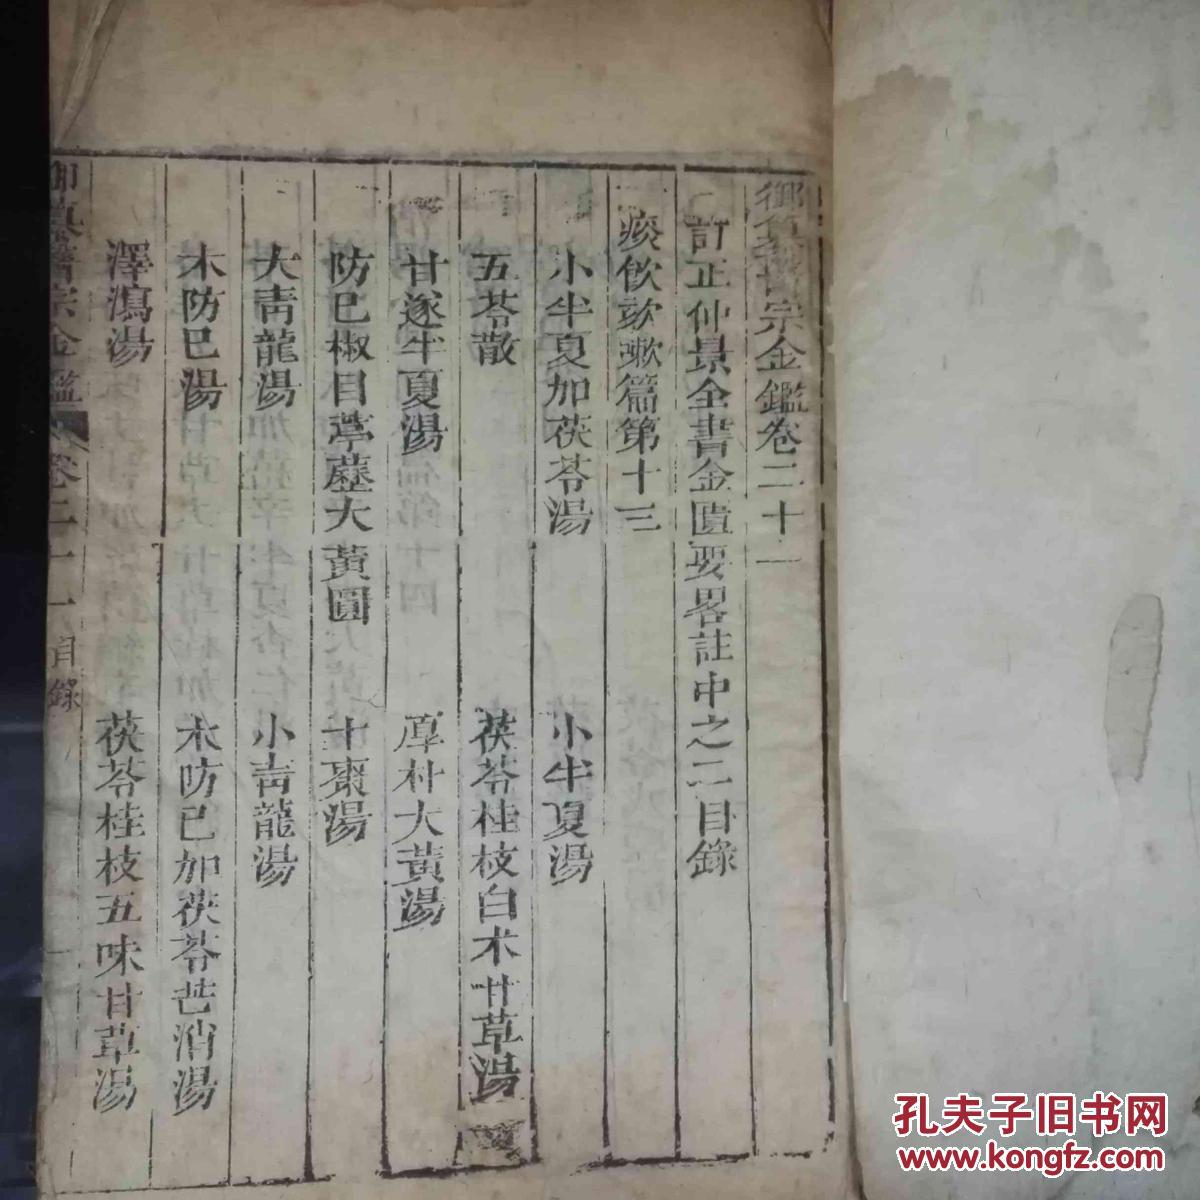 御纂醫宗金鑑卷二十一
訂正仲景全書金匱要畧註中之二目錄
痰飲欬嗽篇第十三
小半夏加茯苓湯 小半夏湯
五苓散 茯苓桂枝白朮甘草湯
甘遂半夏湯 厚朴大黃湯
防巳椒目葶藶大黃圓 十棗湯
大青龍湯 小青龍湯
木防巳湯 木防已加茯苓芒消湯
澤瀉湯 茯苓桂枝五味甘草湯
御纂醫宗金鑑 卷二十一 目錄 一
孔夫子旧书网
www.kongfz.com